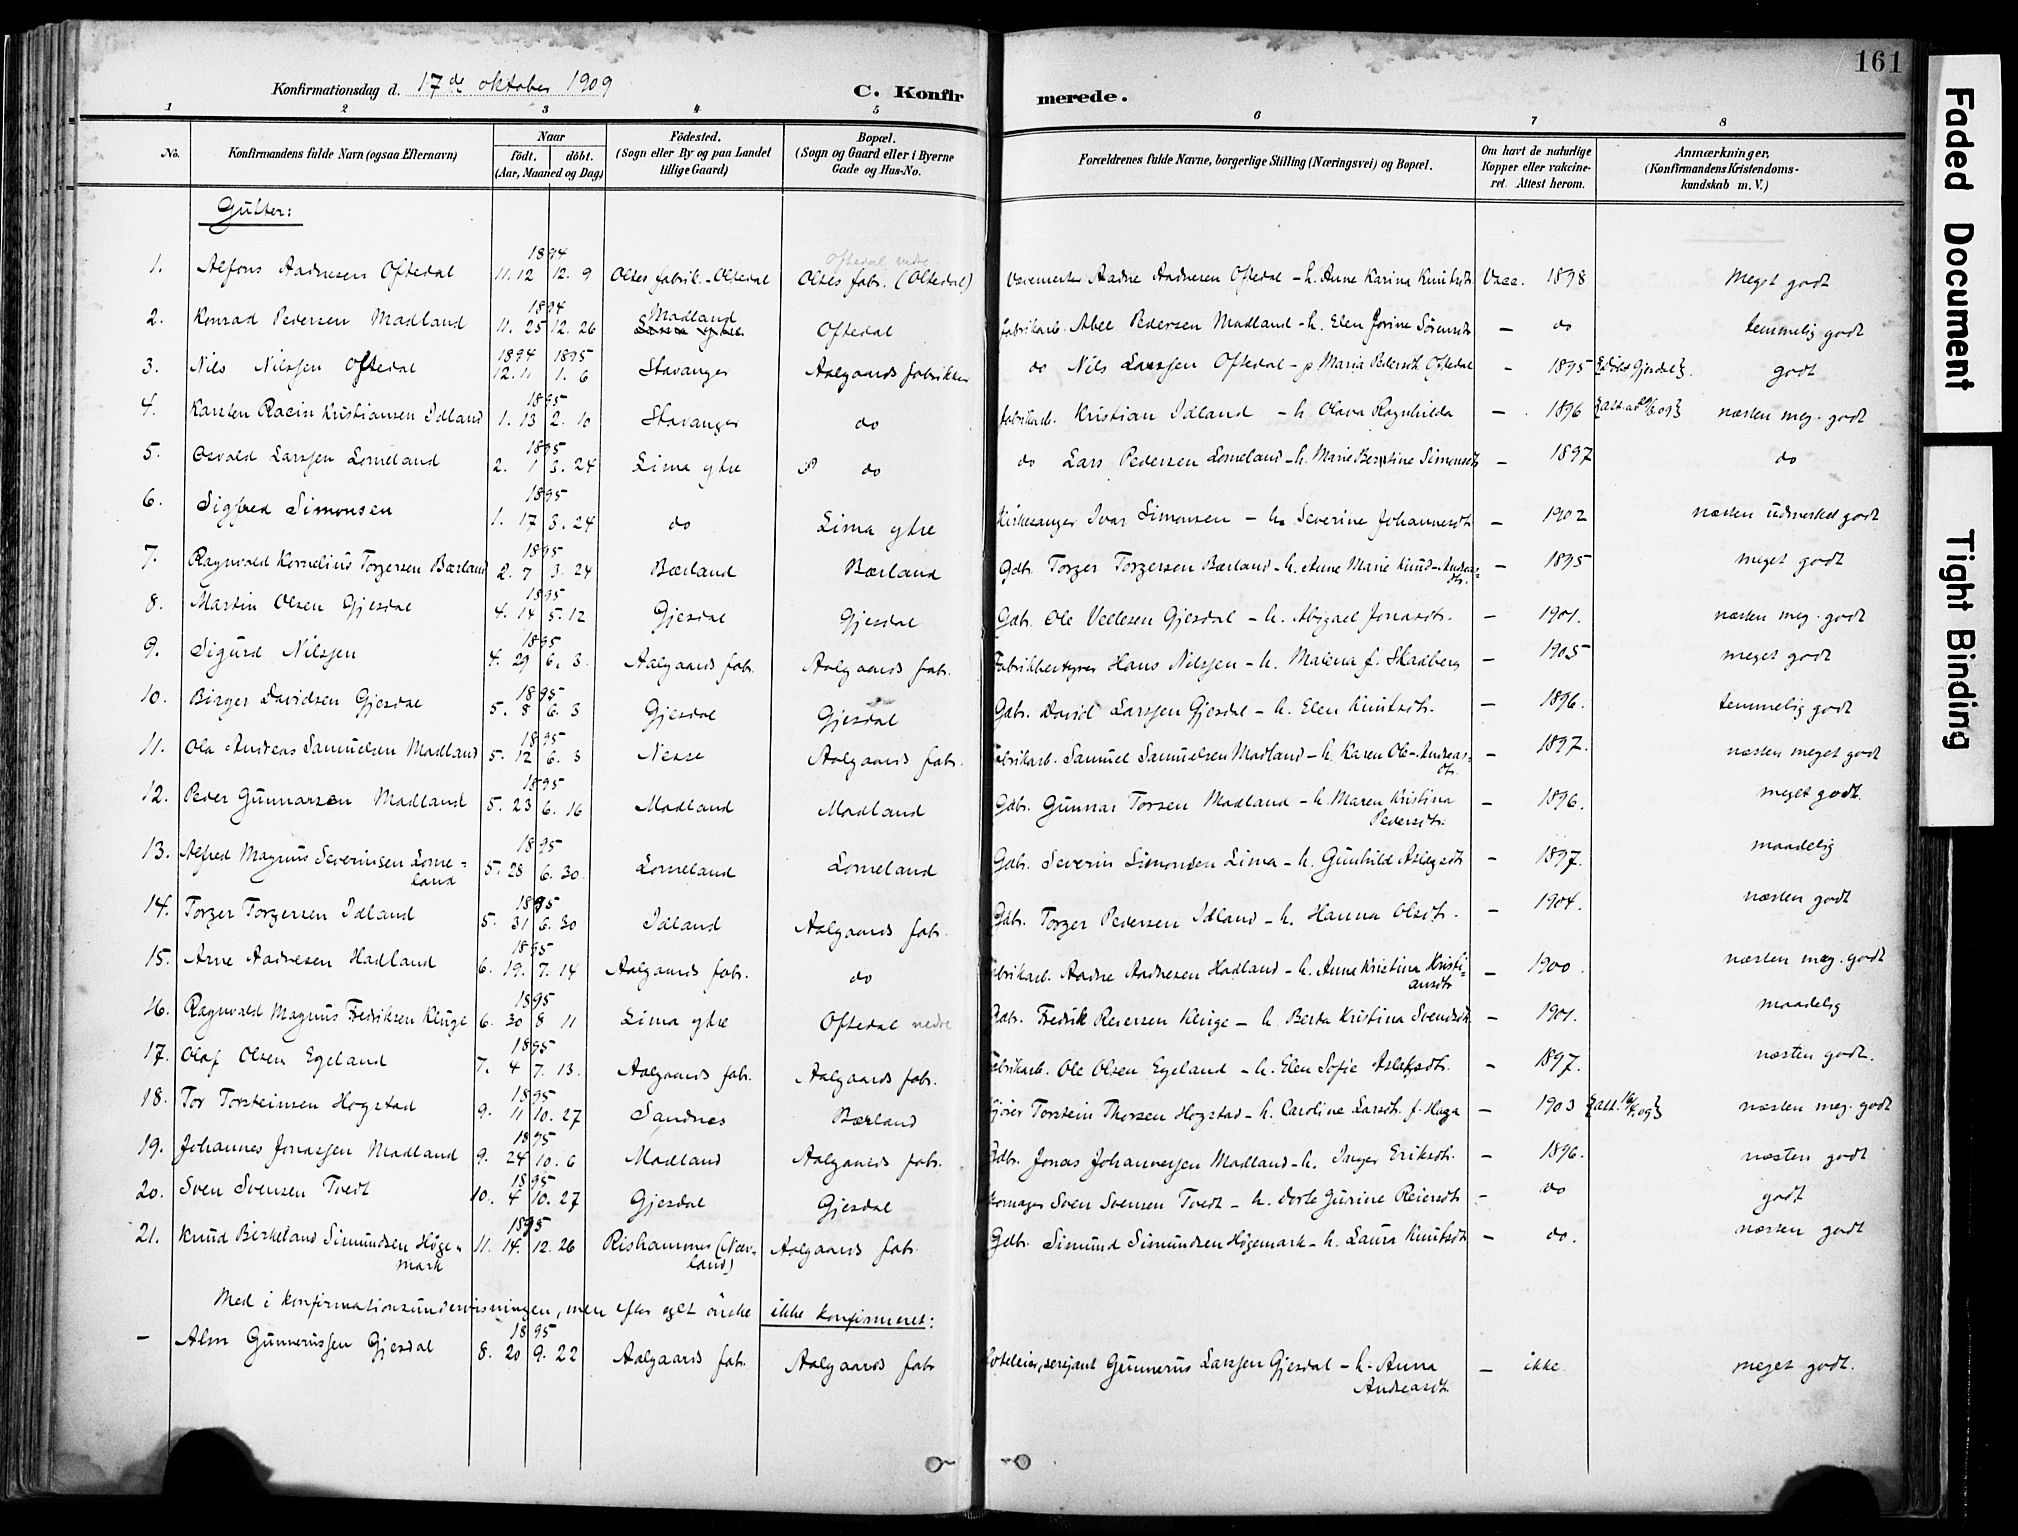 161
Konfirmationsdag d. 17de oktober 1909
C. Konfirmerede.
1 2 3 4 5 6 7 8
No. Konfirmandens fulde Navn (ogsaa Efternavn) Naar födt. döbt. (Aar, Maaned og Dag) Födested. (Sogn eller By og paa Landet tillige Gaard) Bopæl. (Sogn og Gaard eller i Byerne Gade og Hus-No. Forældrenes fulde Navne, borgerlige Stilling (Næringsvei) og Bopæl. Om havt de naturlige Kopper eller vakcineret. Attest herom. Anmærkninger. (Konfirmandens Kristendomskundskab m. V.)
Gutter:
1. Alfons Aadnesen Oftedal 1894 11.12 12.9 Oltes fabrik.-Oltedal Oltes fabr. (Oltedal) Oftedal nedre Væremester Aadne Aadnesen Oftedal - h. Anne Karina Knutsdtr. Vacc. 1898 Meget godt
2. Konrad Pedersen Madland 1894 11.25 12.26 Madland Oftedal fabrikarb. Abel Pedersen Madland - h. Elen Jorine Sörensdtr. - do temmelig godt
3. Nils Nilssen Oftedal 1894 12.11 1895 1.6 Stavanger Aalgaards fabrikker do Nils Larssen Oftedal - p Maria Pedersdtr. Oftedal - 1895 godt
4. Karsten Racin Kristiansen Idland 1895 1.13 2.10 Stavanger do fabrikarb. Kristian Idland - h. Olava Ragnhilda - 1896 næsten meg. godt
5. Osvald Larssen Lomeland 1895 2.1 3.24 Lima ytre do do Lars Pedersen Lomeland - h. Marie Berntine Simonsdtr. - 1897 do
6. Sigfred Simonsen 1895 1.17 3.24 do Lima ytre Kirkesanger Ivar Simonsen - h. Severine Johannesdtr. - 1902 næsten udmerket godt
7. Ragnvald Kornelius Torgersen Bærland 1895 2.7 3.24 Bærland Bærland Gdbr. Torger Torgersen Bærland - h. Anne Marie Knud-Andreasdtr. - 1895 meget godt
8. Martin Olsen Gjesdal 1895 4.14 5.12 Gjesdal Gjesdal Gdbr. Ole Veelesen Gjesdal - h. Abigael Jonasdtr. - 1901. næsten meg. godt
9. Sigurd Nilssen 1895 4.29 6.3 Aalgaards fabr. Aalgaards fabr. Fabrikbestyrer Hans Nilssen - h. Malena f. Skadberg - 1905 meget godt
10. Birger Davidsen Gjesdal 1895 5.8 6.3 Gjesdal Gjesdal Gdbr. David Larssen Gjesdal - h. Elen Knutsdtr. - 1896. temmelig godt
11. Ola Andreas Samuelsen Madland 1895 5.12 6.3 Nesse Aalgaards fabr. Fabrikarb. Samuel Samuelsen Madland - h. Karen Ole-Andreasdtr. - 1897. næsten meget godt
12. Peder Gunnarsen Madland 1895 5.23 6.16 Madland Madland Gdbr. Gunnar Torsen Madland - h. Maren Kristina Pedersdtr. - 1896. meget godt.
13. Alfred Magnus Severinsen Lomeland 1895 5.28 6.30 Lomeland Lomeland Gdbr. Severin Simonsen Lima - h. Gunhilde Aslagsdtr. - 1897. maadelig
14. Torger Torgersen Idland 1895 5.31 6.30 Idland Aalgaards fabr. Gdbr. Torger Pedersen Idland - h. Hanna Olsdtr. - 1904. næsten godt
15. Arne Aadnesen Hadland 1895 6.19. 7.14 Aalgaards fabr. do Fabrikarb. Aadne Aadnesen Hadland - h. Anne Kristina Kristiansdtr. - 1900. næsten meg. godt
16. Ragnvald Magnus Fredriksen Kluge 1895 6.30 8 11 Lima ytre Oftedal nedre Gdbr. Fredrik Reiersen Kluge - h. Berta Kristina Svendsdtr. - 1901. maadelig
17. Olaf Olsen Egeland 1895 7.4 7.13. Aalgaards fabr. Aalgaards fabr. Fabrikarb. Ole Olsen Egeland - h. Elen Sofie Aslaksdtr. - 1897. næsten godt.
18. Tor Torsteinsen Hogstad 1895 9.11 10.27 Sandnes Bærland Kjörer Torstein Thorsen Hogstad - h. Caroline Larsdtr. f. Haga - 1903 næsten meg. godt
19. Johannes Jonassen Madland 1895 9.24 10.6 Madland Aalgaards fabr. Gdbr. Jonas Johannessen Madland - h. Inger Eriksdtr. - 1896. næsten godt
20. Sven Svensen Tvedt 1895 10.4 10.27 Gjesdal Gjesdal Skomager Sven Svensen Tvedt - h. Dorte Gurine Reiersdtr. - do godt
21. Knud Birkeland Simundsen Högemark 1895 11.14. 12.26 Rishammer (Nærland) Aalgaards fabr. Gdbr. Simund Simundsen Högemark - h. Laura Knutsdtr. - do. næsten godt
Med i konfirmationsundervisningen, men efter eget önske ikke konfirmeret:
- Alm Gunnerussen Gjesdal 1895 8.20 9.22 Aalgaards fabr. Aalgaards fabr Hoteleier, sersjant Gunnerus Larssen Gjesdal - h. Anna Andreasdtr. - ikke. meget godt.
Faded Document
Tight Binding